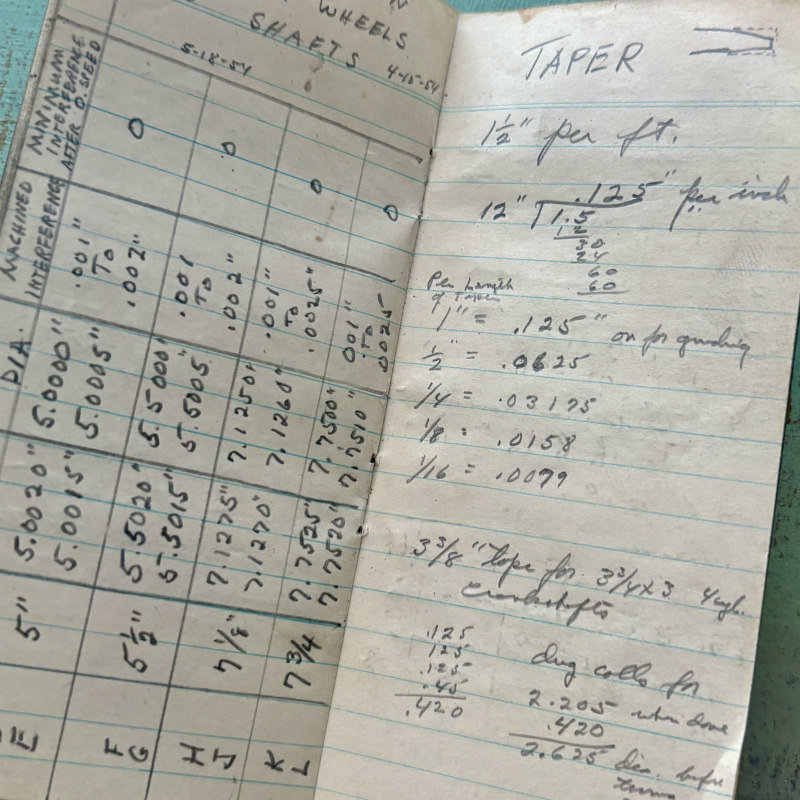 WHEELS
SHAFTS
5-18-54 4-15-54
DIA. MACHINED INTERFERENCE MINIMUM INTERFERENCE AFTER O. SPEED
E 5" 5.0020" 5.0015" 5.0000" 5.0005" .001" TO .002" 0
F G 5 1/2" 5.5020" 5.5015" 5.5000" 5.5005" .001 TO .002" 0
H J 7 1/8" 7.1275" 7.1270" 7.1250" 7.1260" .001" TO .0025" 0
K L 7 3/4 7.7525" 7.7520" 7.7500" 7.7510" .001" TO .0025 0
TAPER
1 1/2" per ft.
.125" per inch
12" 1.5
12
30
24
60
60
Per Length
of Taper
1" = .125" on for grinding
1/2" = .0625
1/4 = .03175
1/8 = .0158
1/16 = .0079
3 3/8" for 3 3/4 x 3 4 cyl.
crankshafts
.125
.125
.125
.45
.420
dwg calls for
2.205 when done
.420
2.625 Dia. before